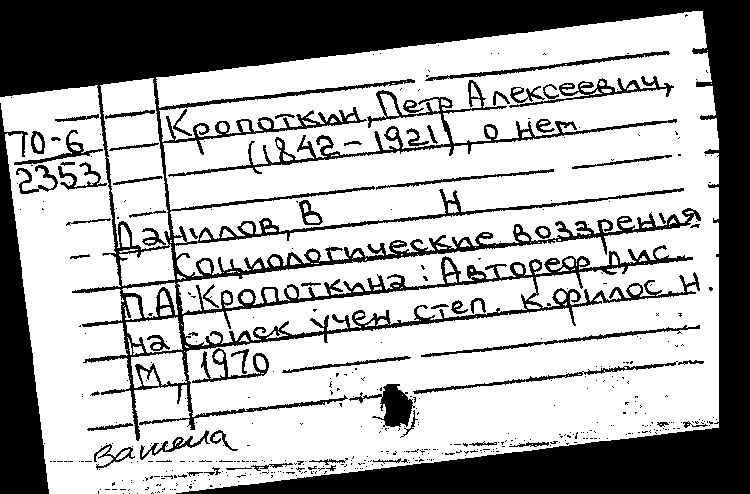 Кропоткин, Петр Алексеевич,
70-6 (1842-1921), о нем
2353
Данилов, В Н
Социологические воззрения
П.А. Кропоткина: Автореф дис.
на соиск учен. степ. к. филос. н.
М., 1970